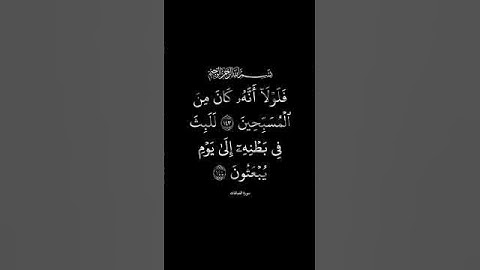 بسم الله الرحمن الرحيم
فَلَوۡلَآ أَنَّهُۥ كَانَ مِنَ
ٱلۡمُسَبِّحِينَ ١٤٣ لَلَبِثَ
فِي بَطۡنِهِۦٓ إِلَىٰ يَوۡمِ
يُبۡعَثُونَ ١٤٤
سورة الصافات